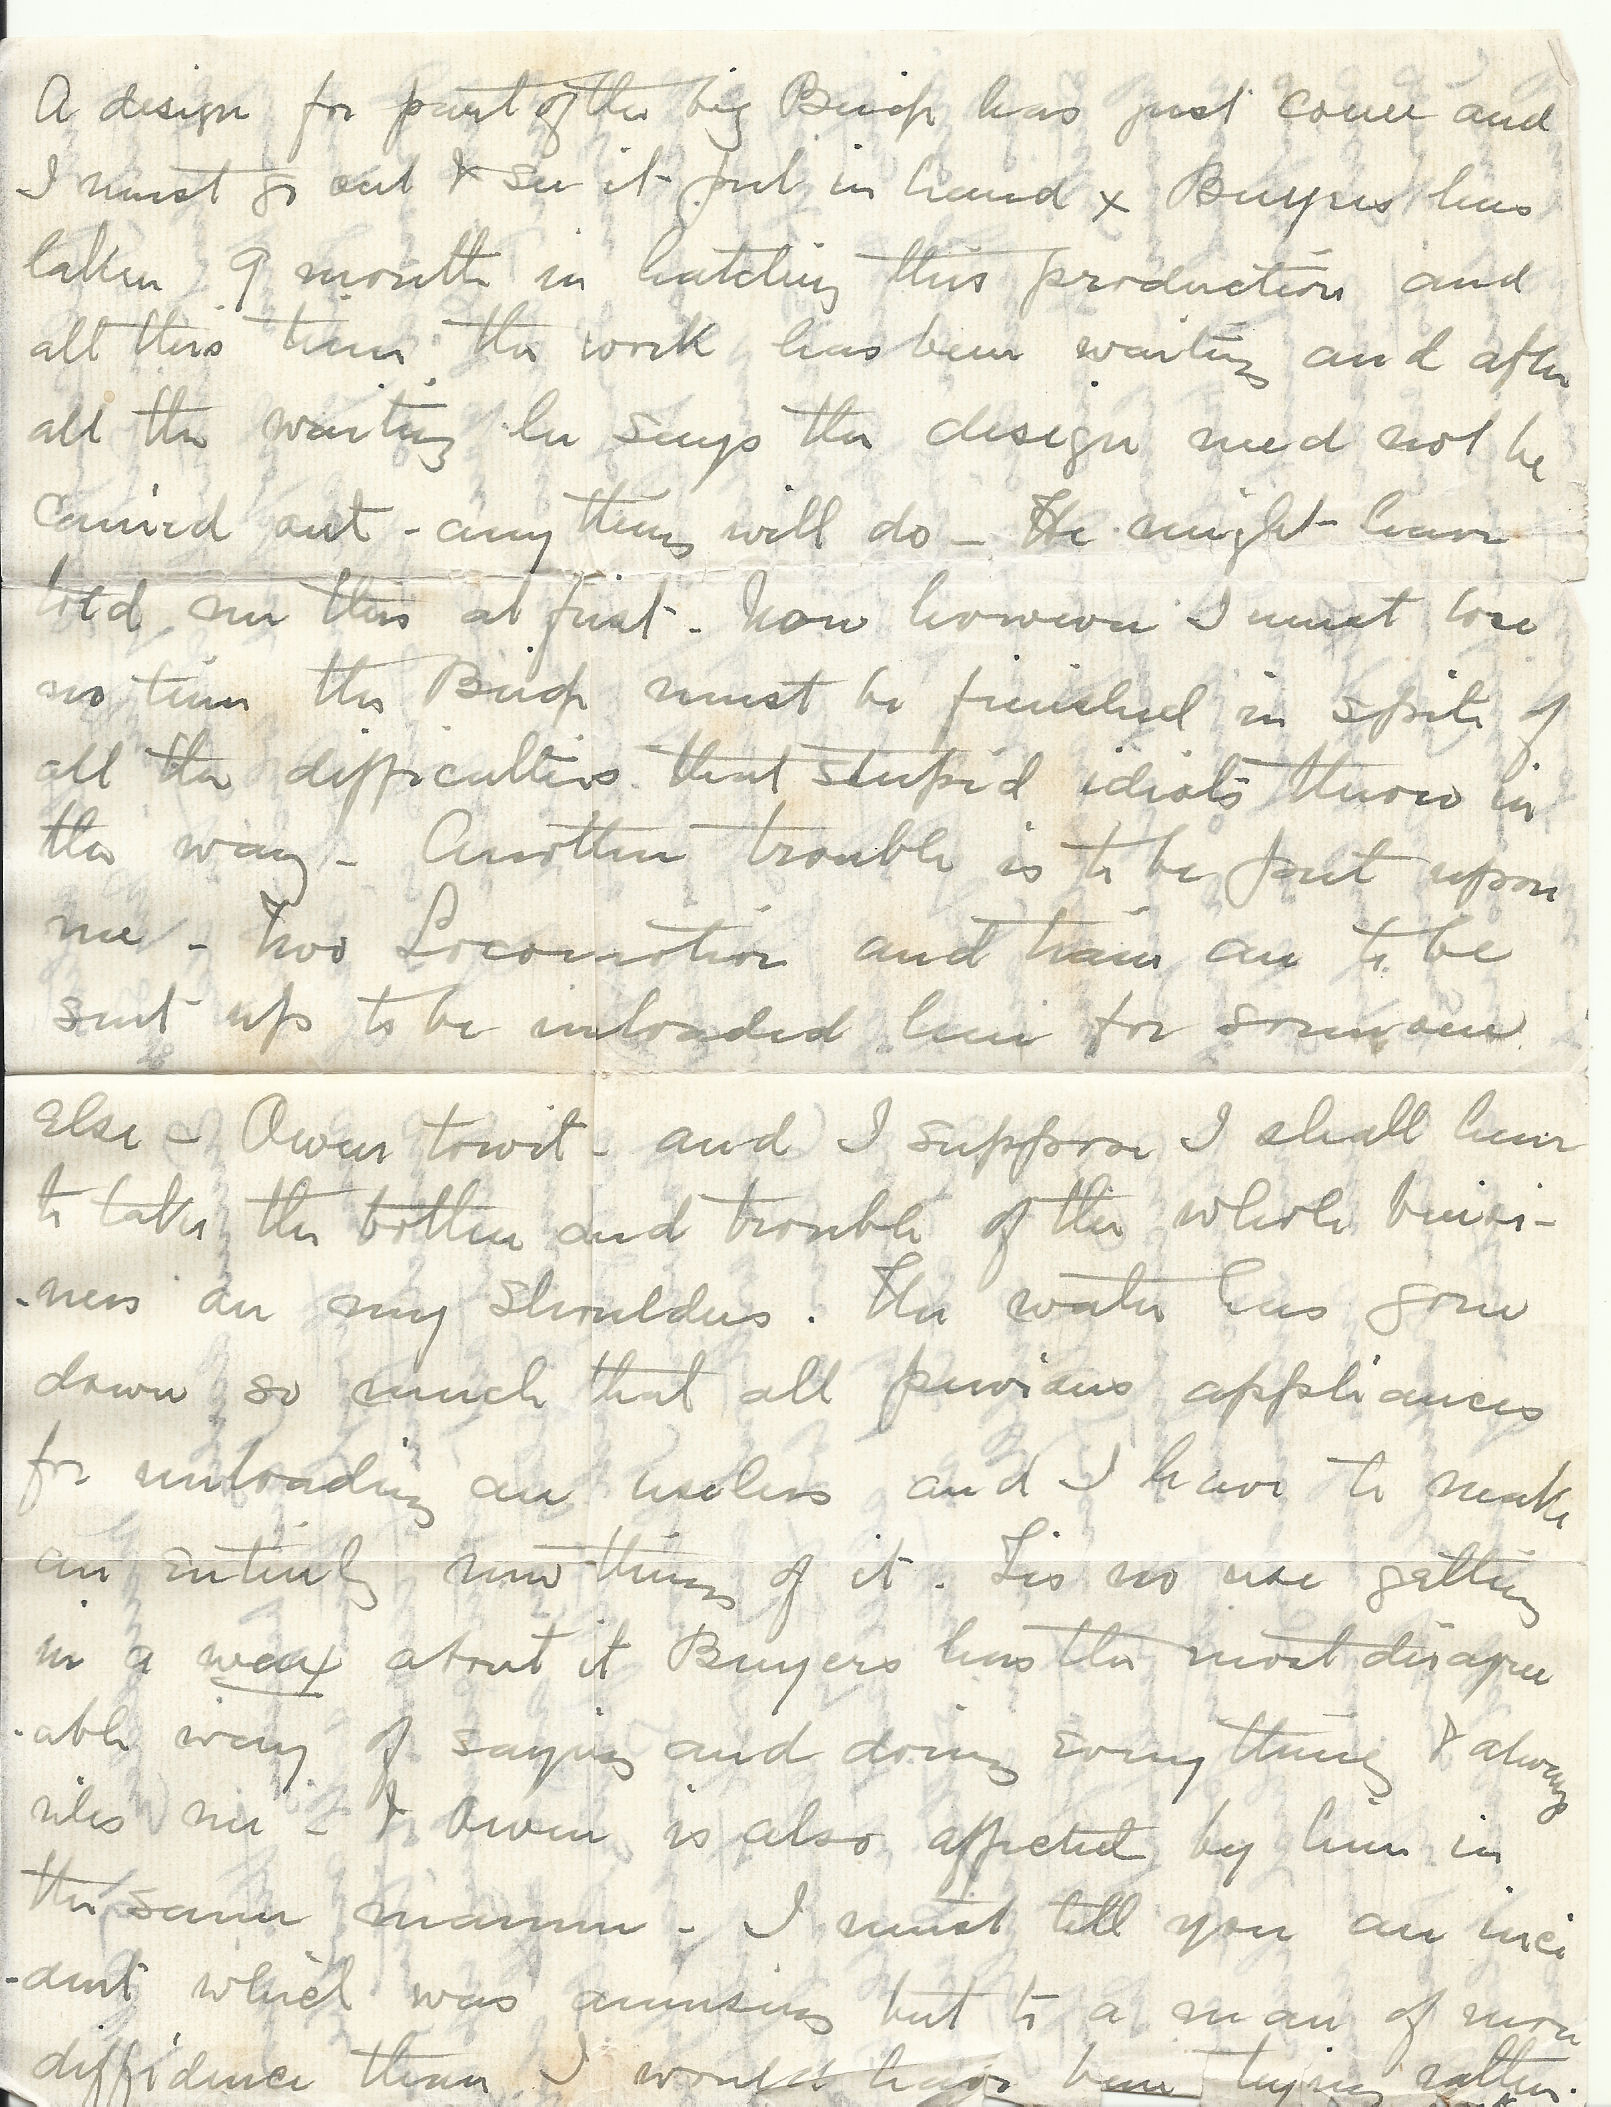 A design for part of the big Bridge has just come and
I must go out & see it put in hand x Buyers has
taken 9 month in hatching this production and
all this time the work has been waiting and after
all the waiting he says the design need not be
carried out - any thing will do - He might have
told me this at first - Now however I must lose
no time the Bridge must be finished in spite of
all the difficulties that stupid idiots throw in
the way - Another trouble is to be put upon
me - Two Locomotive and train are to be
sent up to be unloaded here for someone
else - Owen towit - and I suppose I shall have
to take the bother and trouble of the whole busi-
-ness on my shoulders . The water has gone
down so much that all previous appliances
for unloading are useless and I have to make
an entirely new thing of it . Tis no use getting
in a wax about it Buyers has the most disagree
-able way of saying and doing everything & always
riles me - & Owen is also affected by him in
the same manner - I must tell you an inci
-dent which was amusing but to a man of more
diffidence than I would have been trying rather.